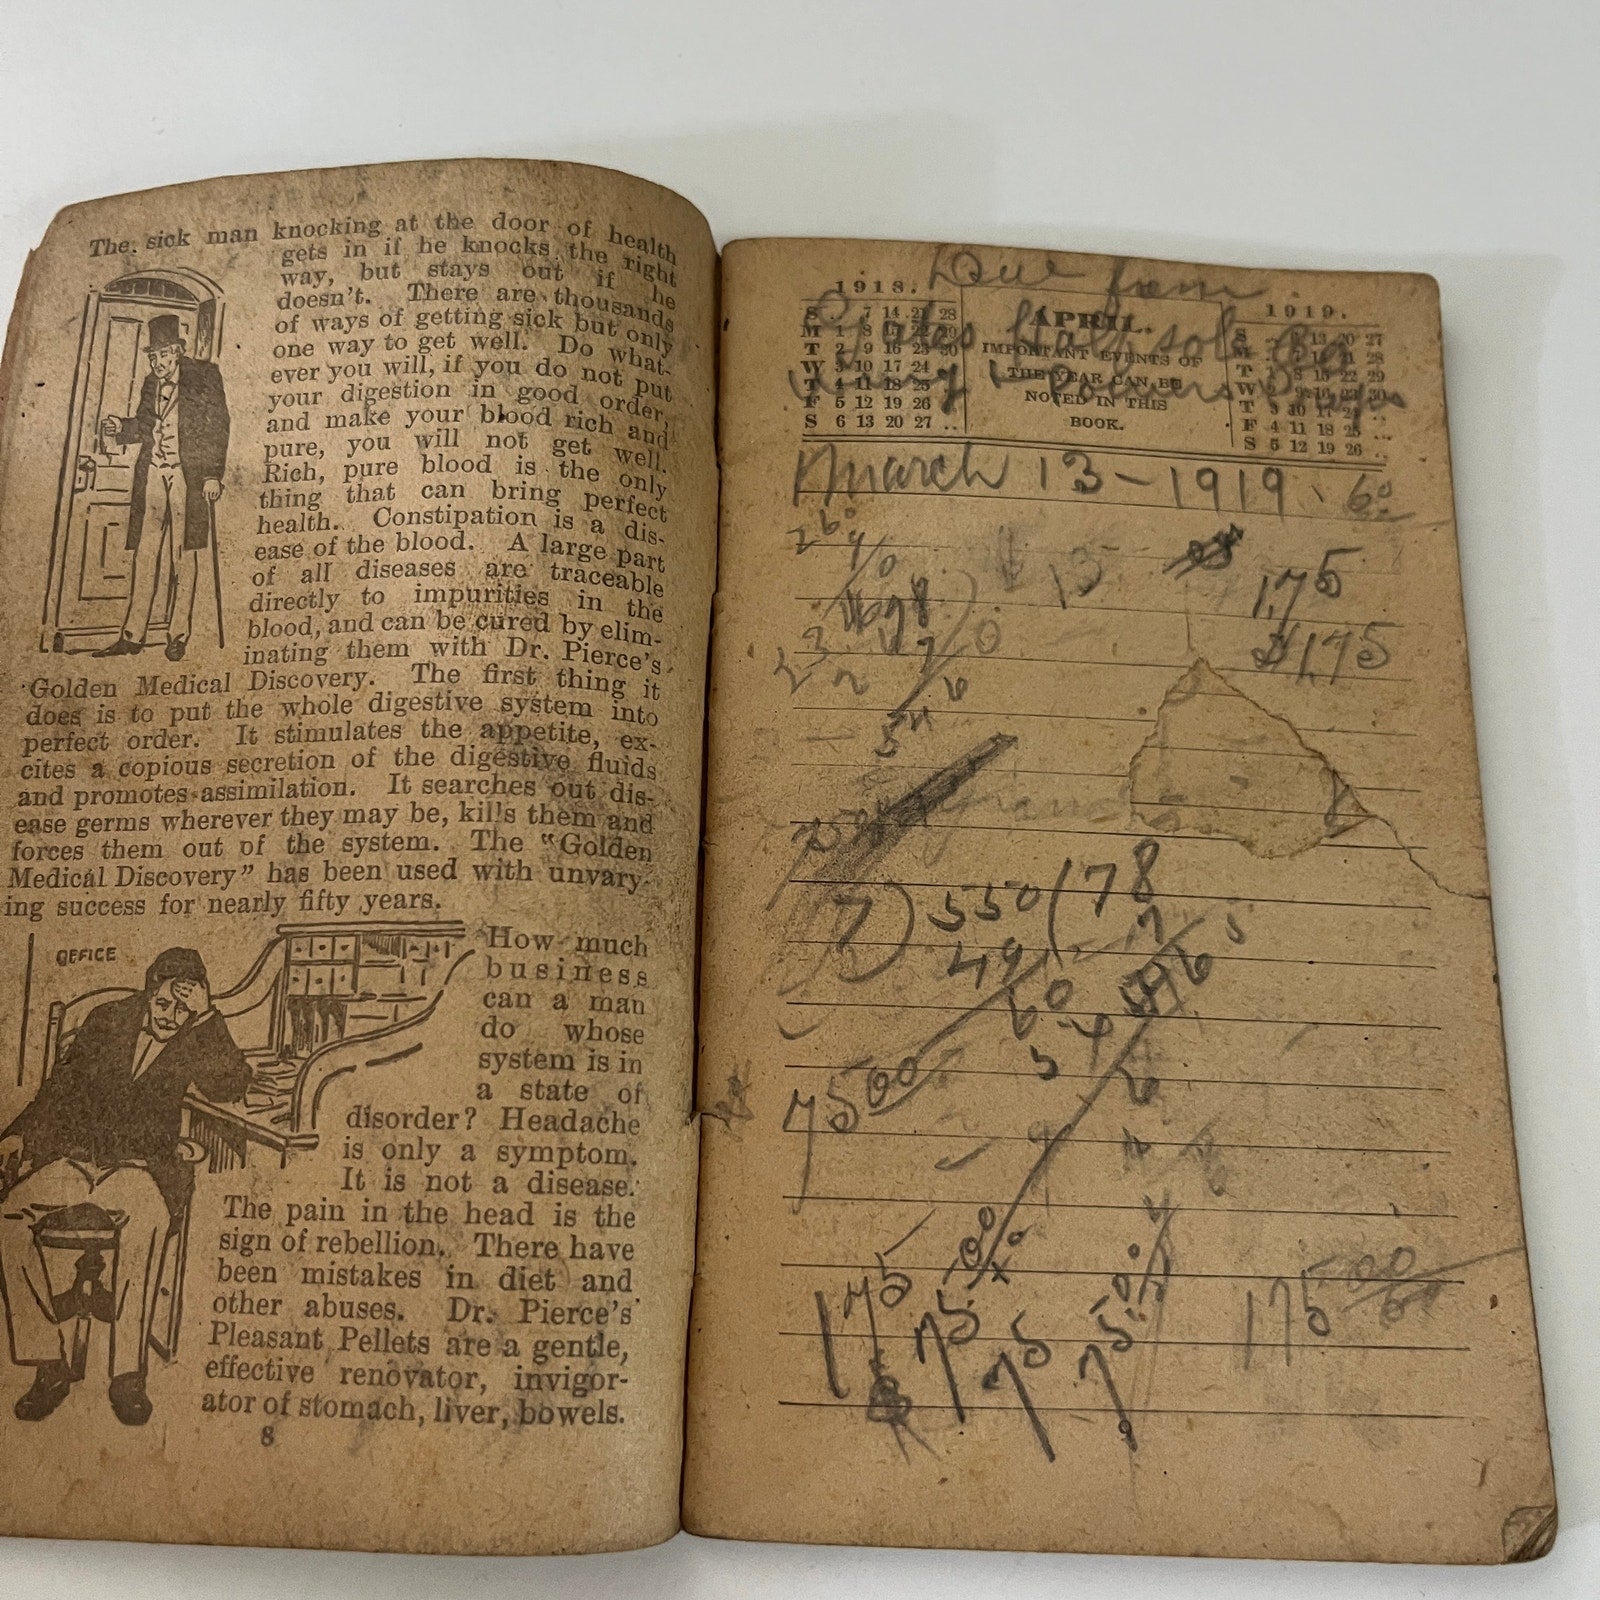 The sick man knocking at the door of health
gets in if he knocks the right
way, but stays out if he
doesn't. There are thousands
of ways of getting sick but only
one way to get well. Do what-
ever you will, if you do not put
your digestion in good order,
and make your blood rich and
pure, you will not get well.
Rich, pure blood is the only
thing that can bring perfect
health. Constipation is a dis-
ease of the blood. A large part
of all diseases are traceable
directly to impurities in the
blood, and can be cured by elim-
inating them with Dr. Pierce's
Golden Medical Discovery. The first thing it
does is to put the whole digestive system into
perfect order. It stimulates the appetite, ex-
cites a copious secretion of the digestive fluids
and promotes assimilation. It searches out dis-
ease germs wherever they may be, kills them and
forces them out of the system. The "Golden
Medical Discovery" has been used with unvary-
ing success for nearly fifty years.
OFFICE
How much
business
can a man
do whose
system is in
a state of
disorder? Headache
is only a symptom.
It is not a disease.
The pain in the head is the
sign of rebellion. There have
been mistakes in diet and
other abuses. Dr. Pierce's
Pleasant Pellets are a gentle,
effective renovator, invigor-
ator of stomach, liver, bowels.
8
Due from
1918.
S . 7 14 21 28
M 1 8 15 22 29
T 2 9 16 23 30
W 3 10 17 24
T 4 11 18 25
F 5 12 19 26
S 6 13 20 27 ..
APRIL.
IMPORTANT EVENTS OF
THE YEAR CAN BE
NOTED IN THIS
BOOK.
1919.
S 6 13 20 27
M 7 14 21 28
T 1 8 15 22 29
W 2 9 16 23 30
T 3 10 17 24 ..
F 4 11 18 25 ..
S 5 12 19 26 ..
half sol
March 13-1919 60
13
175
$175
7) 550 (78
49
60
7500
175
7500
75
7500
17500